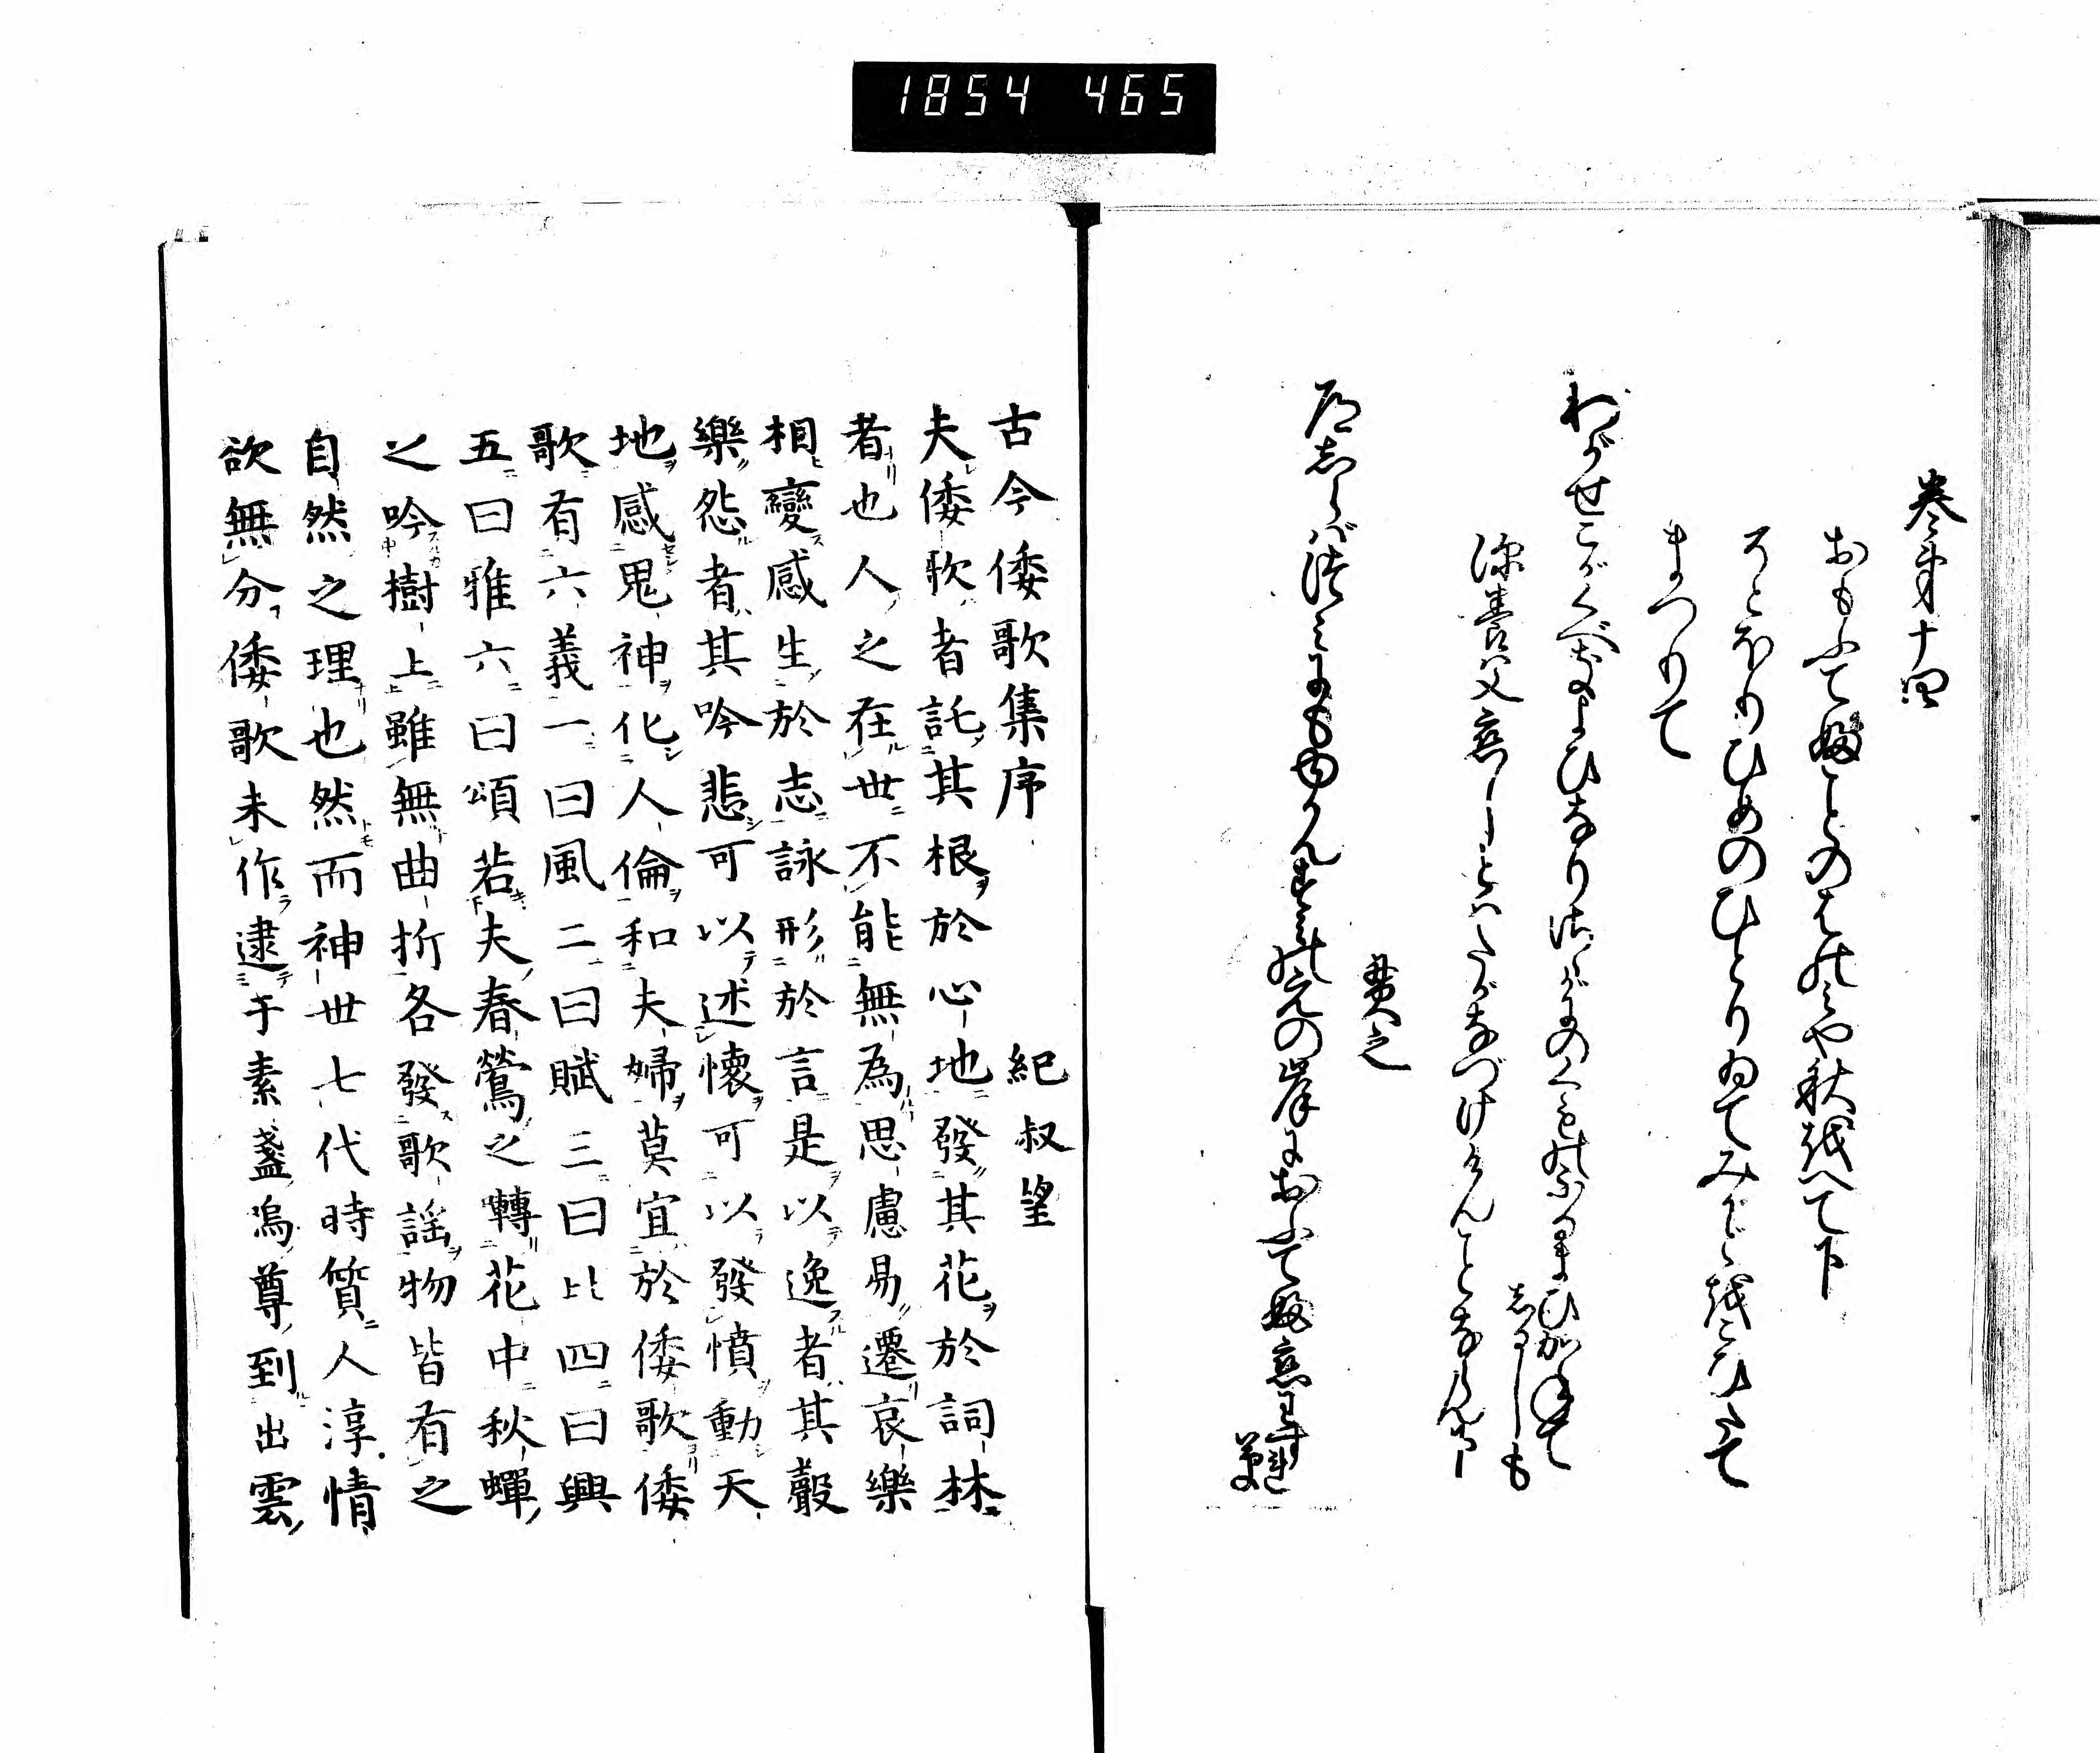 1854 465
巻第十四
おもふてふことのはのみや秋をへて下
そとほりひめのひとりゐてみかどをこひたて
まつりて
わがせこがくべきよひなりさゝがにのくものふるまひかねて
しるしも
深養父恋しとはたがなづけけんことならんたゞ
貫之
道しらばつみにもゆかんすみのえの岸におふてふ恋わすれ
草
古今倭歌集序 紀叔望
夫倭歌者託其根於心地發其花於詞林
者也人之在世不能無為思慮易遷哀樂
相變感生於志詠形於言是以逸者其聲
樂怨者其吟悲可以述懐可以發憤動天
地感鬼神化人倫和夫婦莫宜於倭歌倭
歌有六義一曰風二曰賦三曰比四曰興
五曰雅六曰頌若夫春鶯之囀花中秋蟬
之吟樹上雖無曲折各發歌謡物皆有之
自然之理也然而神世七代時質人淳情
欲無分倭歌未作逮于素盞烏尊到出雲